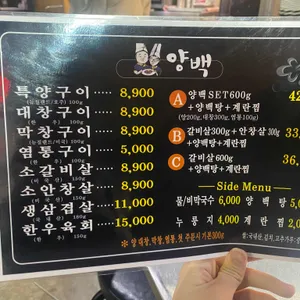 양백
특양구이 ····· 8,900
(뉴질랜드/호주) 100g
대창구이 ····· 8,900
(한우) 100g
막창구이 ····· 8,900
(뉴질랜드/미국) 200g
염통구이 ····· 5,000
(한우) 100g
소갈비살 ····· 8,900
(미국산) 100g
소안창살 ····· 8,900
(미국산) 100g
생삼겹살 ····· 11,000
(국내산) 180g
한우육회 ····· 15,000
(한우) 150g
※ 양대창,막창,염통, 첫 주문시 기본300g
A 양백SET600g
+양백탕+계란찜
(양200g, 대창300g, 염통100g)
42
B 갈비살300g+안창살 300g
+양백탕+계란찜
33
C 갈비살600g
+양백탕+계란찜
36,
Side Menu
물/비빔국수 6,000 양백탕 5,0
누룽지 4,000 계란찜 2,0
쌀:국내산, 김치, 고추가루: